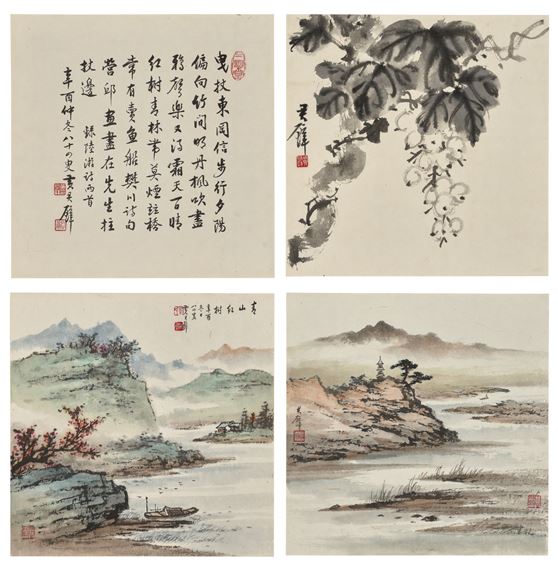 曳杖東岡信步行夕陽
偏向竹間明丹楓吹盡
鴉聲樂又得霜天一日晴
紅樹青林帶莫煙竝橋
常有賣魚船樊川詩句
營邱畫盡在先生拄
杖邊 錄陸游詩兩首
辛酉仲冬八十四叟黃君璧
君璧
青山紅樹
君璧